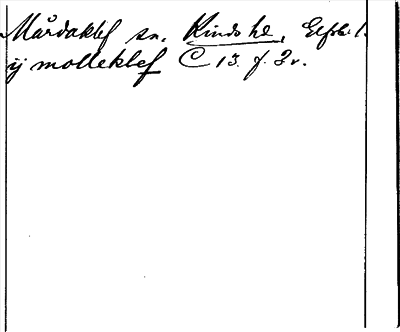 Mårdaklef sn. Kinds hd, Elfsb. l.
ij molleklef C 13. f. 3 v.